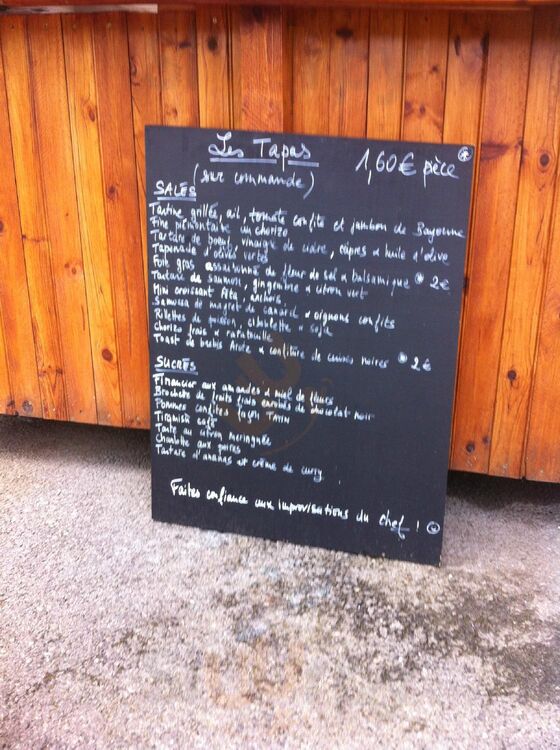 Les Tapas
1,60€ pièce
(sur commande)
SALÉS
Tartine grillée, ail, tomate confite et jambon de Bayonne
Fine piémontaise au chorizo
Tartare de boeuf, vinaigre de cidre, câpres & huile d'olive
Tapenade d'olives vertes
Foie gras assaisonné de fleur de sel & balsamique 2€
Tartare de saumon, gingembre & citron vert
Mini croissant feta, anchois
Samossa de magret de canard & oignons confits
Rillettes de poisson, ciboulette &
Chorizo frais & ratatouille
Toast de brebis & confiture de cerises noires 2€
SUCRÉS
Financier aux amandes & miel de fleurs
Brochette de fruits frais enrobés de chocolat noir
Pommes confites façon Tatin
Tiramisu café
Tarte au citron meringuée
Charlotte aux poires
Tartare d'ananas et crème de curry
Faites confiance aux improvisations du chef !